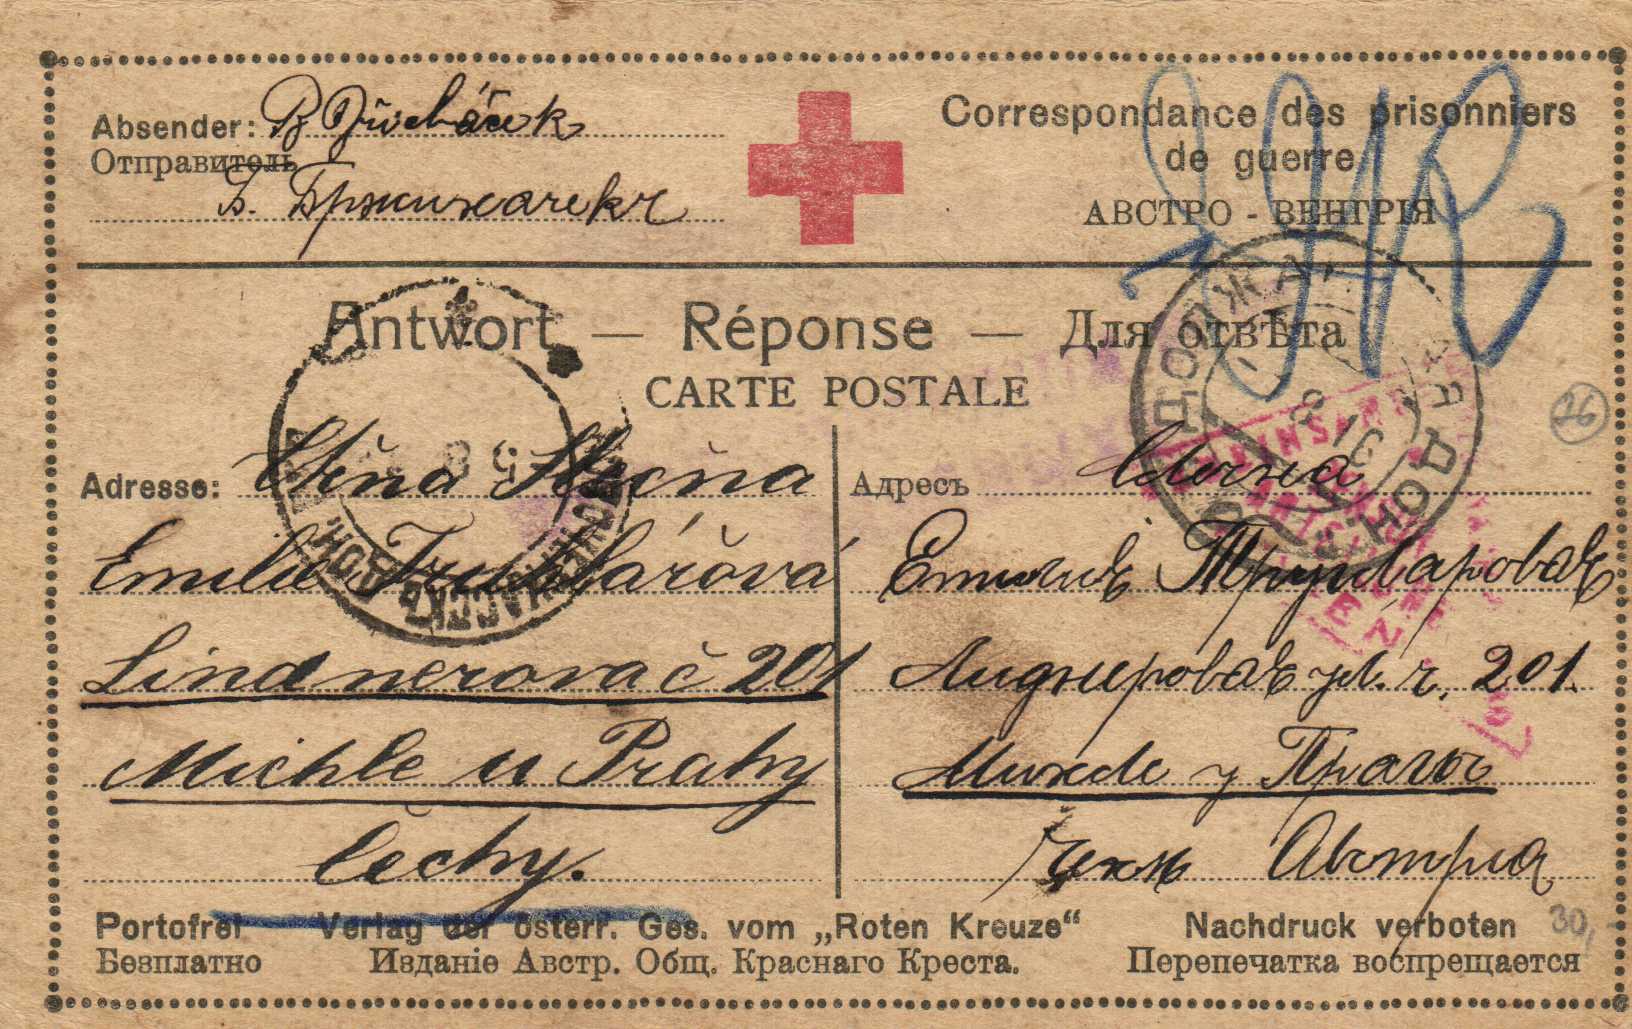 Absender: B Břicháček
Отправитель
Б. Бржихачекъ
Correspondance des prisonniers
de guerre
АВСТРО - ВЕНГРІЯ
Antwort — Réponse — Для отвѣта
CARTE POSTALE
Adresse: Slečna
Emilie Truhlářová
Lindnerova č 201
Michle u Prahy
Čechy.
Адресъ Слечна
Емилие
Лиднерова ул. ч. 201.
Михле у Праги
Чехы Австрия
26
30
Portofrei Verlag der österr. Ges. vom „Roten Kreuze“ Nachdruck verboten
Безплатно Изданіе Австр. Общ. Краснаго Креста. Перепечатка воспрещается